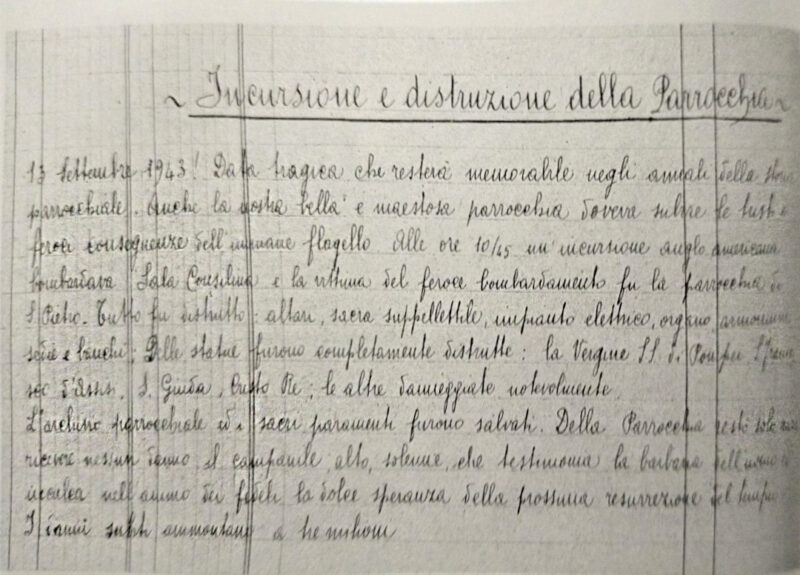 ~ Incursione e distruzione della Parrocchia ~
13 Settembre 1943! Data tragica che resterà memorabile negli annali della storia
parrocchiale. Anche la nostra bella e maestosa parrocchia doveva subire le tristi e
feroci conseguenze dell'immane flagello. Alle ore 10/45 un'incursione anglo americana
bombardava Sala Consilina e la vittima del feroce bombardamento fu la parrocchia di
S. Pietro. Tutto fu distrutto: altari, sacra suppellettile, impianto elettrico, organo armonium
sedie e banchi; Delle statue furono completamente distrutte: la Vergine SS. di Pompei, S. Fran
sco d'Assisi, S. Giuda, Cristo Re; le altre danneggiate notevolmente
L'archivio parrocchiale ed i sacri paramenti furono salvati. Della Parrocchia restò solo
ricevere nessun danno il campanile alto, solenne, che testimonia la barbarie dell'uomo e
inculca nell'animo dei fedeli la dolce speranza della prossima resurrezione del tempio
I danni subiti ammontano a tre milioni